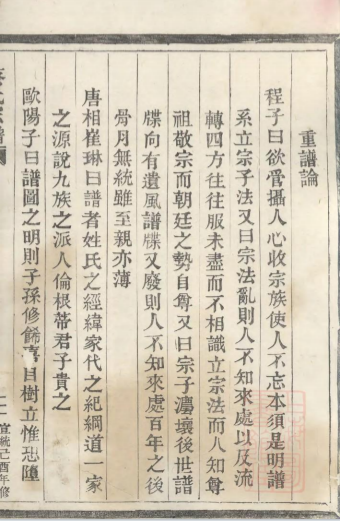 重譜論
程子曰欲管攝人心收宗族使人不忘本須是明譜
系立宗子法又曰宗法亂則人不知來處以及流
轉四方往往服未盡而不相識立宗法而人知尊
祖敬宗而朝廷之勢自尊又曰宗子灋壞後世譜
牒向有遺風譜牒又廢則人不知來處百年之後
骨月無統雖至親亦薄
唐相崔琳曰譜者姓氏之經緯家代之紀綱道一家
之源說九族之派人倫根蒂君子貴之
歐陽子曰譜圖之明則子孫修餙喜自樹立惟恐墮
宣統己酉年修